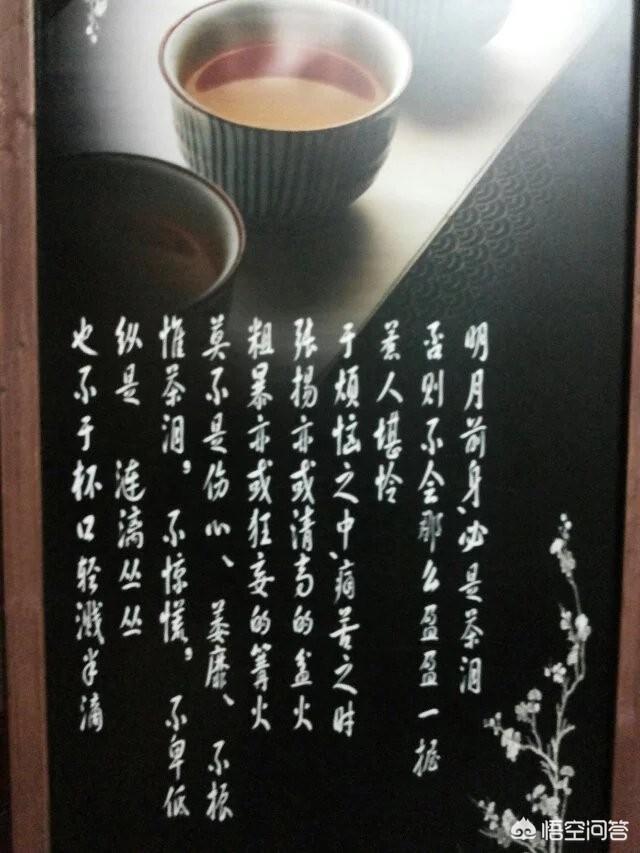 明月前身、必是茶泪
否则不会那么盈盈一握
羡人堪怜
于烦恼之中、痛苦之时
张扬亦或清高的盆火
粗暴亦或狂妄的篝火
莫不是伤心、萎靡、不振
惟茶泪，不惊慌，不卑低
纵是 涟漓丛丛
也不于杯口轻溅半滴
悟空问答